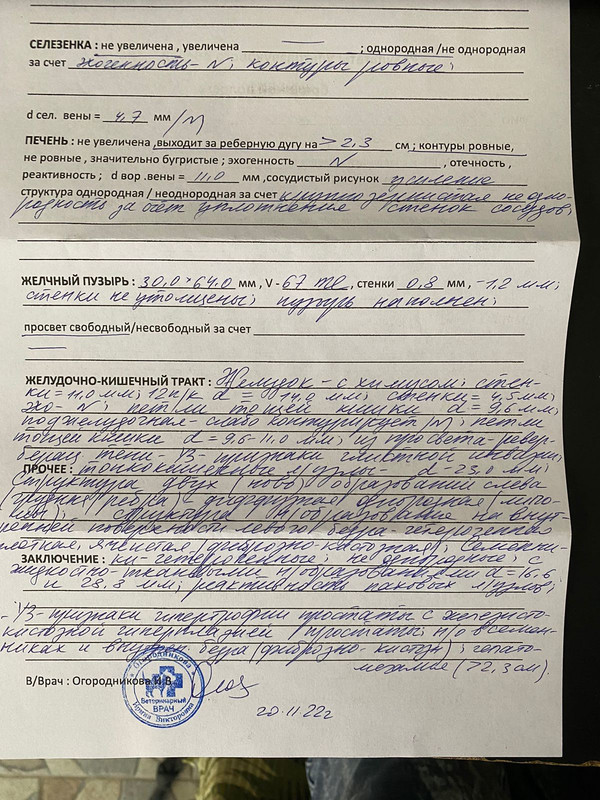 СЕЛЕЗЕНКА : не увеличена , увеличена ______ ; однородная /не однородная
за счет эхогенность - N; контуры ровные;
d сел. вены = 4,7 мм /N
ПЕЧЕНЬ : не увеличена ,выходит за реберную дугу на > 2,3 см ; контуры ровные,
не ровные , значительно бугристые ; эхогенность N , отечность ,
реактивность ; d вор .вены = 11,0 мм ,сосудистый рисунок усиление
структура однородная / неоднородная за счет крупнозернистая неодно-
родность за счет уплотнения стенок сосудов;
ЖЕЛЧНЫЙ ПУЗЫРЬ : 30,0 × 64,0 мм , V - 67 ml , стенки 0,8 мм , -1,2 мм;
стенки не утолщены; пузырь наполнен;
просвет свободный/несвободный за счет
ЖЕЛУДОЧНО-КИШЕЧНЫЙ ТРАКТ : Желудок - с химусом; стен-
ки = 11,0 мм; 12 п/к d = 14,0 мм; стенки = 4,5 мм;
эхо - N; петли тощей кишки d = 9,6 мм;
поджелудочная - слабо контурирует /N; петли
тощей кишки d = 9,6 - 11,0 мм; из просвета - ревер-
берац. тени - УЗ - признаки глистной инвазии;
ПРОЧЕЕ : тонкокишечные л/узлы - d - 23,0 мм;
Структура двух (ново) образований слева
(ребра) - диффузная однородная (липо-
мы); структура н/образования на внут-
ренней поверхности левого бедра - гетерогенная
плотная, ячеистая (фиброзно-кистозная); Семенни-
ЗАКЛЮЧЕНИЕ : ки - неоднородные; с
жидкостно-тканевыми н/образованиями d = 16,6
и 28,3 мм; реактивность паховых л/узлов;
- УЗ - признаки гипертрофии простаты с железисто-
кистозной гиперплазией простаты; н/о в семен-
никах и внутрен. бедра (фиброзно-кистозн); гепато-
мегалия (> 2,3 см).
В/Врач : Огородникова И.В.
Огородникова
Ветеринарный
ВРАЧ
Ирина Викторовна
20.11.22г